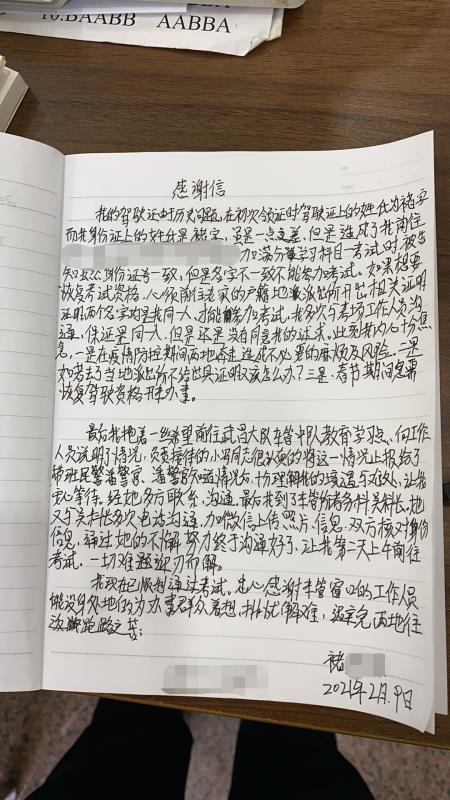 10.BAABB AABBA
No.
Date
感谢信
我的驾驶证由于历史问题,在初次领证时驾驶证上的姓氏为褚字
而我身份证上的姓氏是褚字,虽是一点之差,但是造成了我前往
加满分学习科目一考试时被告
知以公身份证号一致,但是名字不一致不能参加考试。如果想要
恢复考试资格,必须前往老家的户籍地派出所开出相关证明
证明两个名字均是我同一人,才能参加考试。我多次与考场工作人员沟
通,保证是同一人,但是还是没有同意我的诉求。此刻我内心十分焦
急,一是在疫情防控期间两地奔走造成不必要的麻烦及风险。二是
如若去了当地派出所不给出具证明又该怎么办?三是,春节期间急需
恢复驾驶资格开车办事。
最后我抱着一丝希望前往武昌大队车管中队教育学习点,向工作
人员说明了情况,负责接待的小同志很认真的将这一情况上报给了
带班民警希警官,潘警官知道情况后,十分理解我的境遇与难处,让我
安心等待。经她多方联系,沟通,最后找到了车管所考务科吴科长,她
又与吴科长多次电话沟通,加微信上传照片,信息,双方核对身份
信息,通过她的不懈努力终于沟通好了,让我第二天上午前往
考试。一切难题迎刃而解。
我现在已顺利通过考试。衷心感谢车管窗口的工作人员
能设身处地的为办事群众着想,排忧解难,避免两地往
返跑路之苦!
褚
2021年2月9日